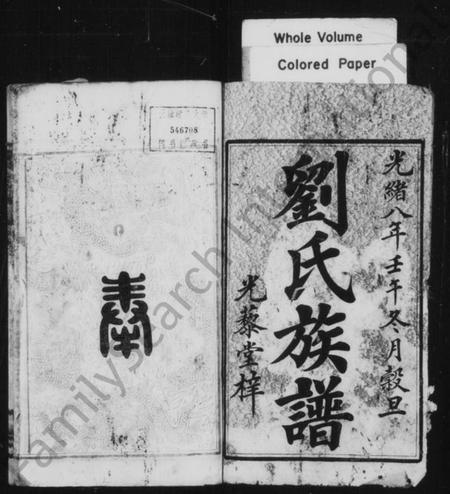 Whole Volume
Colored Paper
546708
光緒八年壬午冬月穀旦
劉氏族譜
光藜堂梓
FamilySearch International